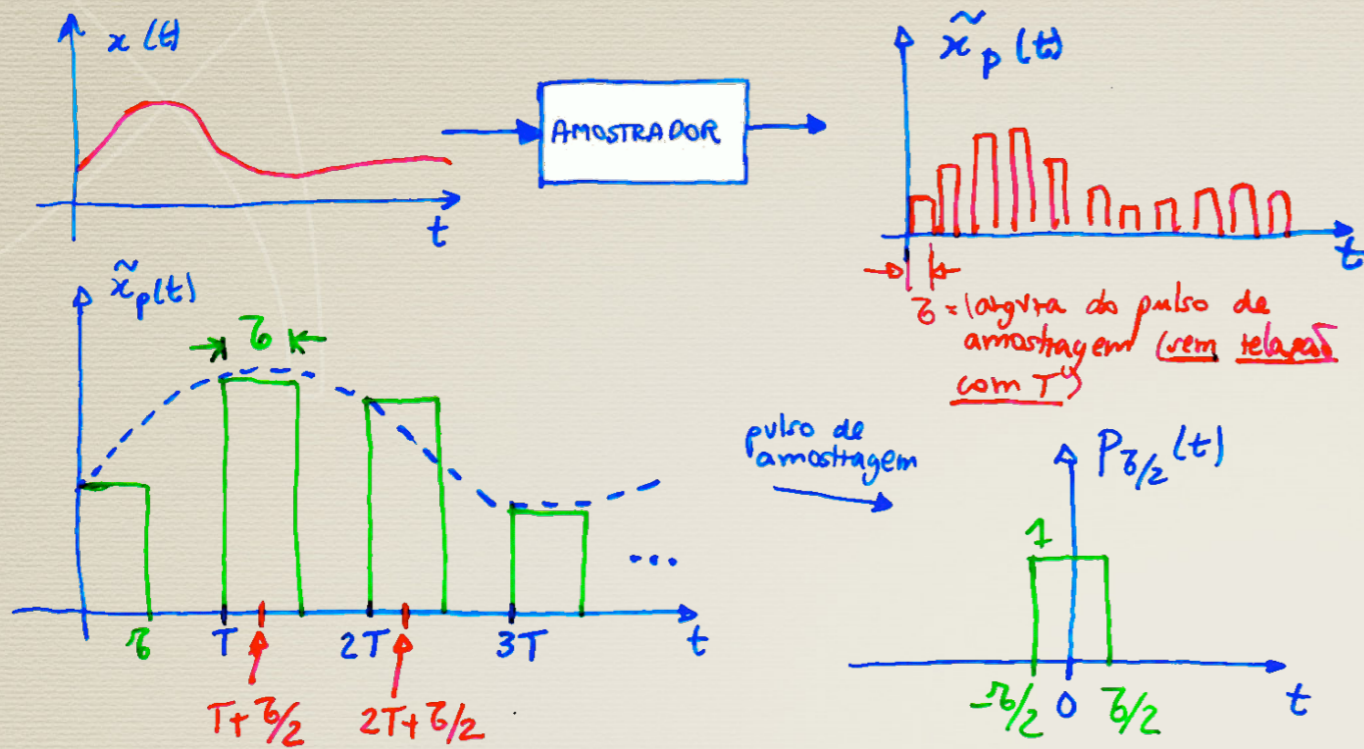 x(t)
t
AMOSTRADOR
x̃p(t)
t
τ = largura do pulso de
amostragem (sem relação
com T)
x̃p(t)
τ
τ
T
2T
3T
t
T+τ/2
2T+τ/2
...
pulso de
amostragem
Pτ/2(t)
1
-τ/2
0
τ/2
t